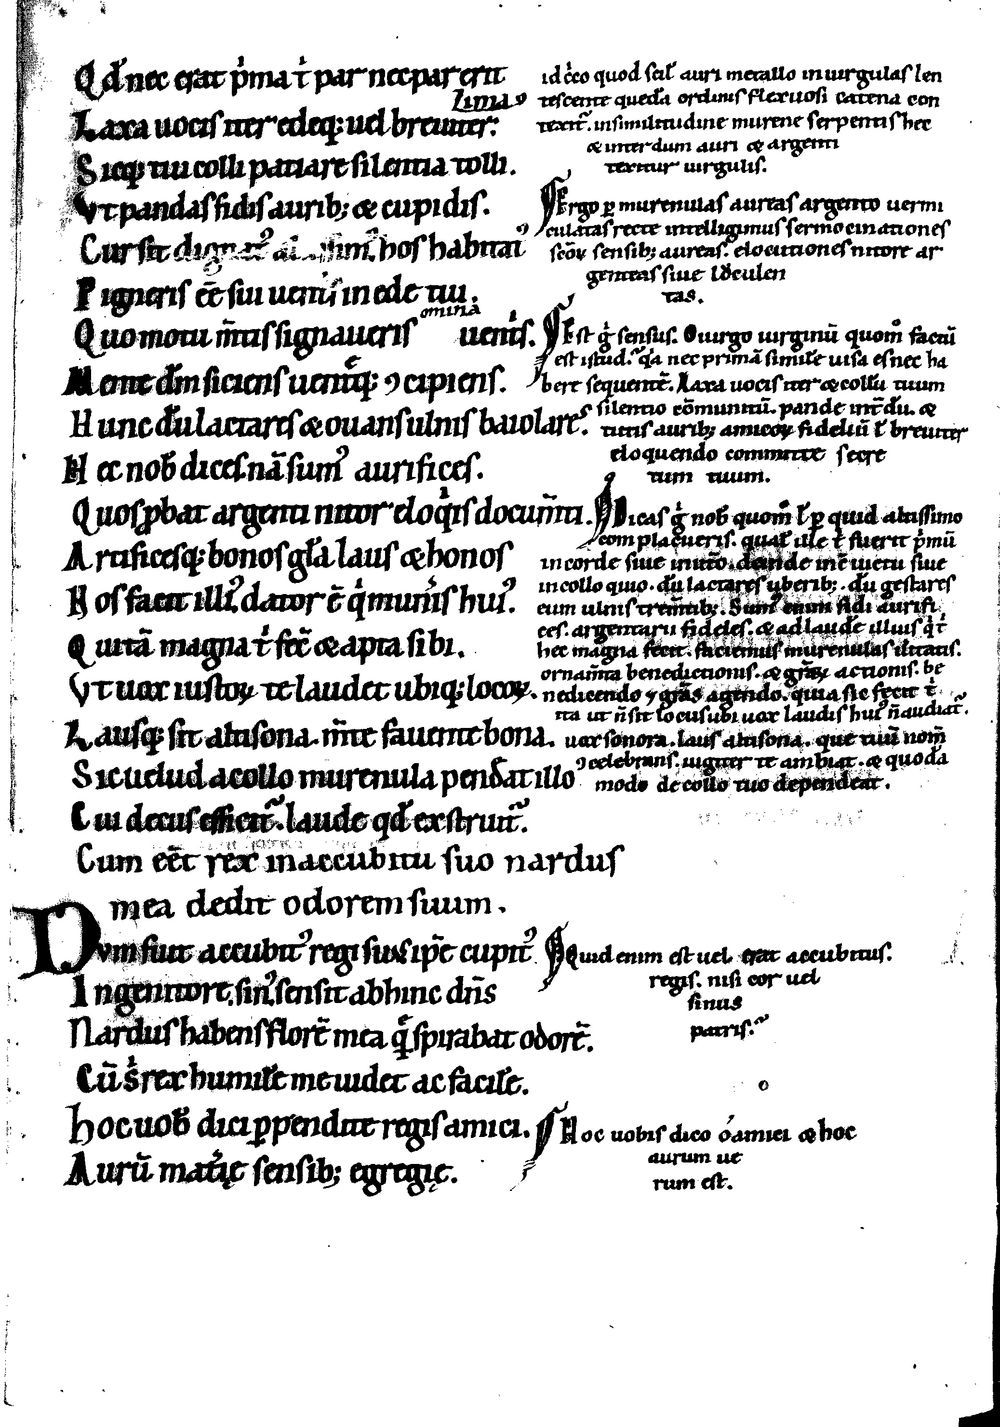 Qđ nec erat p̍ma t̍ par nec par erit
Lima⁹
Laxa uocis iter edeq; uel breuiter:
Sicq; tui colli patiare silentia tolli.
Vt pandas fidis aurib; & cupidis.
Cur sit hos habitat⁹
Pigneris eē sui uent̍s in ede tui.
omina
Quo motu m̄tis signaueris uent̍s.
Mente dm̄ siciens uentq̄; ꝯcipiens.
Hunc du̅ lactares & ouans ulnis baiolares.
Hec nob̄ dices nā sum⁹ aurifices.
Quos ꝓbat argenti nitor eloq̍is docum̄ti.
Artificesq; bonos gl̄a laus & honos
Hos facit illi⁹ dator ē q̍ mun̍is hui⁹.
Qui tā magna t̍ fec̄ & apta sibi.
Vt uox iustoꝝ te laudet ubiq; locoꝝ.
Lausq; sit altisona. m̄te fauente bona.
Sic uelud a collo murenula pendat illo
Cui decus efficit᷒. laude qđ exstruit᷒.
Cum eēt rex in accubitu suo nardus
mea dedit odorem suum.
Dvm fuit accubit⁹ regi suus ip̄e cupit⁹
In genitore, sin⁹, sensit abhinc dn̄s
Nardus habens florē mea q̄ spirabat odorē.
Cū s̍ rex humile me uidet ac facile.
hoc uob̄ dici ꝑpendite regis amici.
Aurū mat̍ię sensib; egregię.
id c̍co quod scil̄ auri metallo in uirgulas len
tescente queda̅ ordinis flexuosi catena con
texit᷒. in similitudine murene serpentis hec
& interdum auri & argenti
texitur uirgulis.
Ergo ꝑ murenulas aureas argento uermi
culatas recte intelligimus sermocinationes
scōꝝ sensib; aureas. elocutiones nitore ar
genteas siue luculen
tas.
Est g̍ sensus. O uirgo uirginū quom̊ factū
est istud. q̍a nec primā simile uisa es nec ha
bere sequentē. Laxa uocis iter & collū tuum
silentio cōmunitū. pande int̄du̅. &
tuis aurib; amicoꝝ fidelium l̄ breuiter
eloquendo committe secre
tum tuum.
Dicas g̍ nob̄ quom̊ l̄ ꝑ quid altissimo
complacueris. qual̄ ille t̍ fuerit p̍mū
in corde siue deinde in uētu siue
in collo quio. du̅ lactares uberib;. du̅ gestares
eum ulnis trem̄tib;. Sum⁹ enim fidi aurifi
ces. argentarii fideles. & ad laudē illius q̍ t̍
hec magna fecit. faciemus murenulas
ornam̄ta benedictionis. & gr̄aꝝ actionis. be
nedicendo & gr̄as agendo. quia sic fecit t̍
ita ut n̄ sit locus ubi uox laudis hui⁹ n̄ audiat᷒.
uox sonora. laus altisona. que tuū nom̄
ꝯcelebrans. iugiter te ambiat. & quoda̅
modo de collo tuo dependeat.
Quid enim est uel erat accubitus.
regis. nisi cor uel
sinus
patris.
Hoc uobis dico ó amici & hoc
aurum ue
rum est.